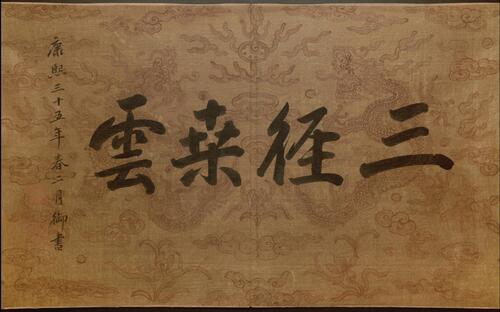 三徑桒雲
康熙三十五年春二月御書